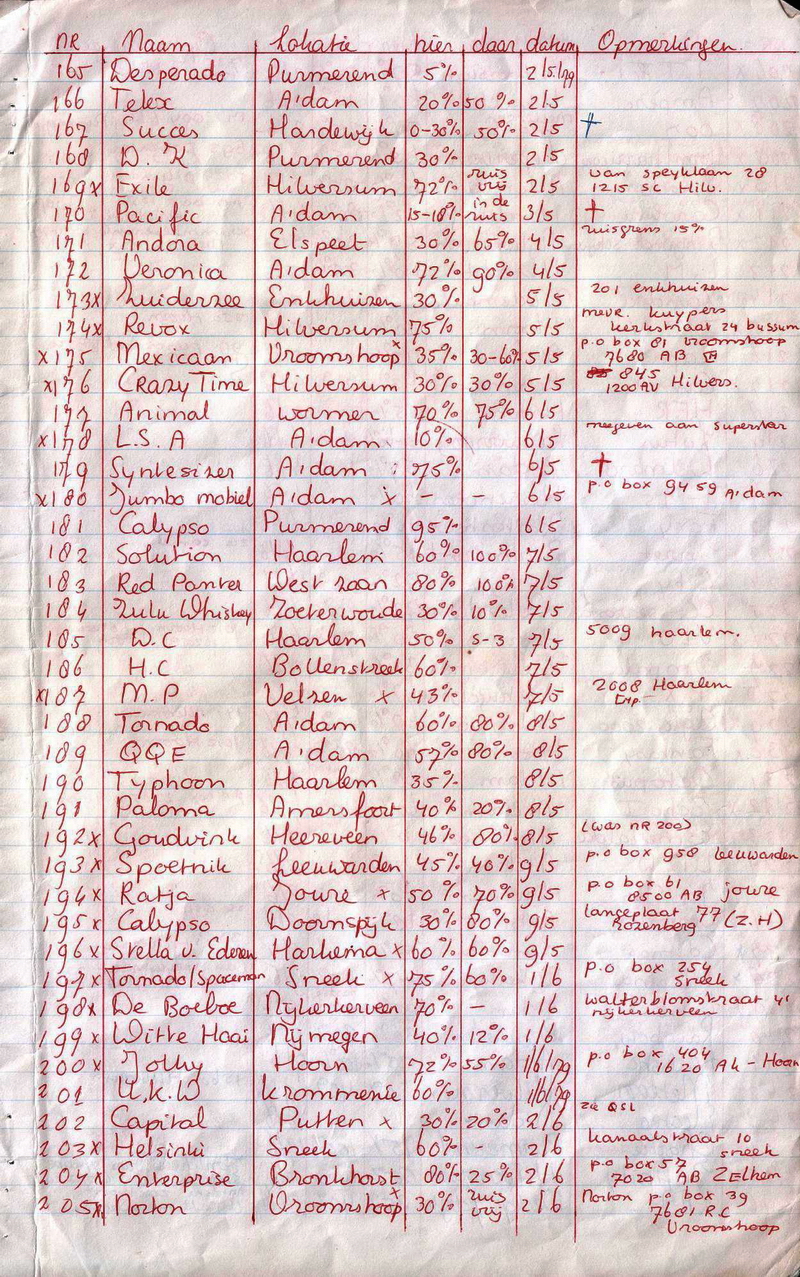 NR Naam Lokatie hier daar datum Opmerkingen.
165 Desperado Purmerend 5% 2/5/79
166 Telex A'dam 20% 50% 2/5
167 Succes Hardewijk 0-30% 50% 2/5 †
168 D.K Purmerend 30% 2/5
169x Exile Hilversum 72% ruis vrij 2/5 van speyklaan 28
1215 SC Hilv.
170 Pacific A'dam 15-18% in de ruis 3/5 †
171 Andora Elspeet 30% 65% 4/5 ruisgrens 15%
172 Veronica A'dam 72% 90% 4/5
173x Zuiderzee Enkhuizen 30% 5/5 201 enkhuizen
174x Revox Hilversum 75% 5/5 mevr. kuypers
kerkstraat 24 bussum
x175 Mexicaan Vroomshoop x 35% 30-60% 5/5 p.o box 81 vroomshoop
7680 AB
x176 Crazy Time Hilversum 30% 30% 5/5 845
1200 AV Hilvers.
177 Animal wormer 70% 75% 6/5
x178 L.S.A A'dam 10% 6/5 meegeven aan superstar
179 Syntesizer A'dam 75% 6/5 †
x180 Jumbo mobiel A'dam x - - 6/5 p.o box 9459 A'dam
181 Calypso Purmerend 95% 6/5
182 Solution Haarlem 60% 100% 7/5
183 Red Panter West zaan 80% 100% 7/5
184 Zulu Whiskey Zoeterwoude 30% 10% 7/5
185 D.C Haarlem 50% S-3 7/5 5009 haarlem.
186 H.C Bollenstreek 60% 7/5
x187 M.P Velzen x 43% 7/5 2008 Haarlem
Exp.
188 Tornado A'dam 60% 80% 8/5
189 QQE A'dam 57% 80% 8/5
190 Typhoon Haarlem 35% 8/5
191 Paloma Amersfoort 40% 20% 8/5
192x Goudvink Heereveen 46% 80% 8/5 (was nR 200)
193x Spoetnik Leeuwarden 45% 40% 9/5 p.o box 958 leeuwarden
194x Ratja Joure x 50% 70% 9/5 p.o box 61
8500 AB joure
195x Calypso Doornspijk 30% 80% 9/5 langeplaat 77 (Z.H)
Rozenberg
196x Stella v. Ederen Harkema x 60% 60% 9/5
197x Tornado/Spaceman Sneek x 75% 60% 1/6 p.o box 254
Sneek
198x De Boeboe Nijkerkerveen 70% - 1/6 walterblomstraat 41
nijkerkerveen
199x Witte Haai Nijmegen 40% 12% 1/6
200x Jolly Hoorn 72% 55% 1/6/79 p.o box 404
1620 Ak - Hoorn
201 U.K.W krommenie 60% 1/6/79
202 Capital Putten x 30% 20% 2/6 zie QSL
203x Helsinki Sneek 60% - 2/6 kanaalstraat 10
sneek
204x Enterprise Bronkhorst 80% 25% 2/6 p.o box 57
7020 AB Zelhem
205x Norton Vroomshoop x 30% ruis vrij 2/6 Norton p.o box 39
7681 R.C
Vroomshoop